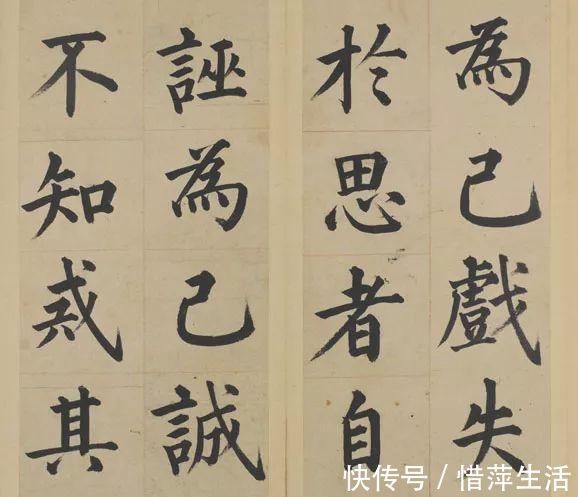 為己戲失
於思者自
誣為己誠
不知戒其
快传号／惜萍生活